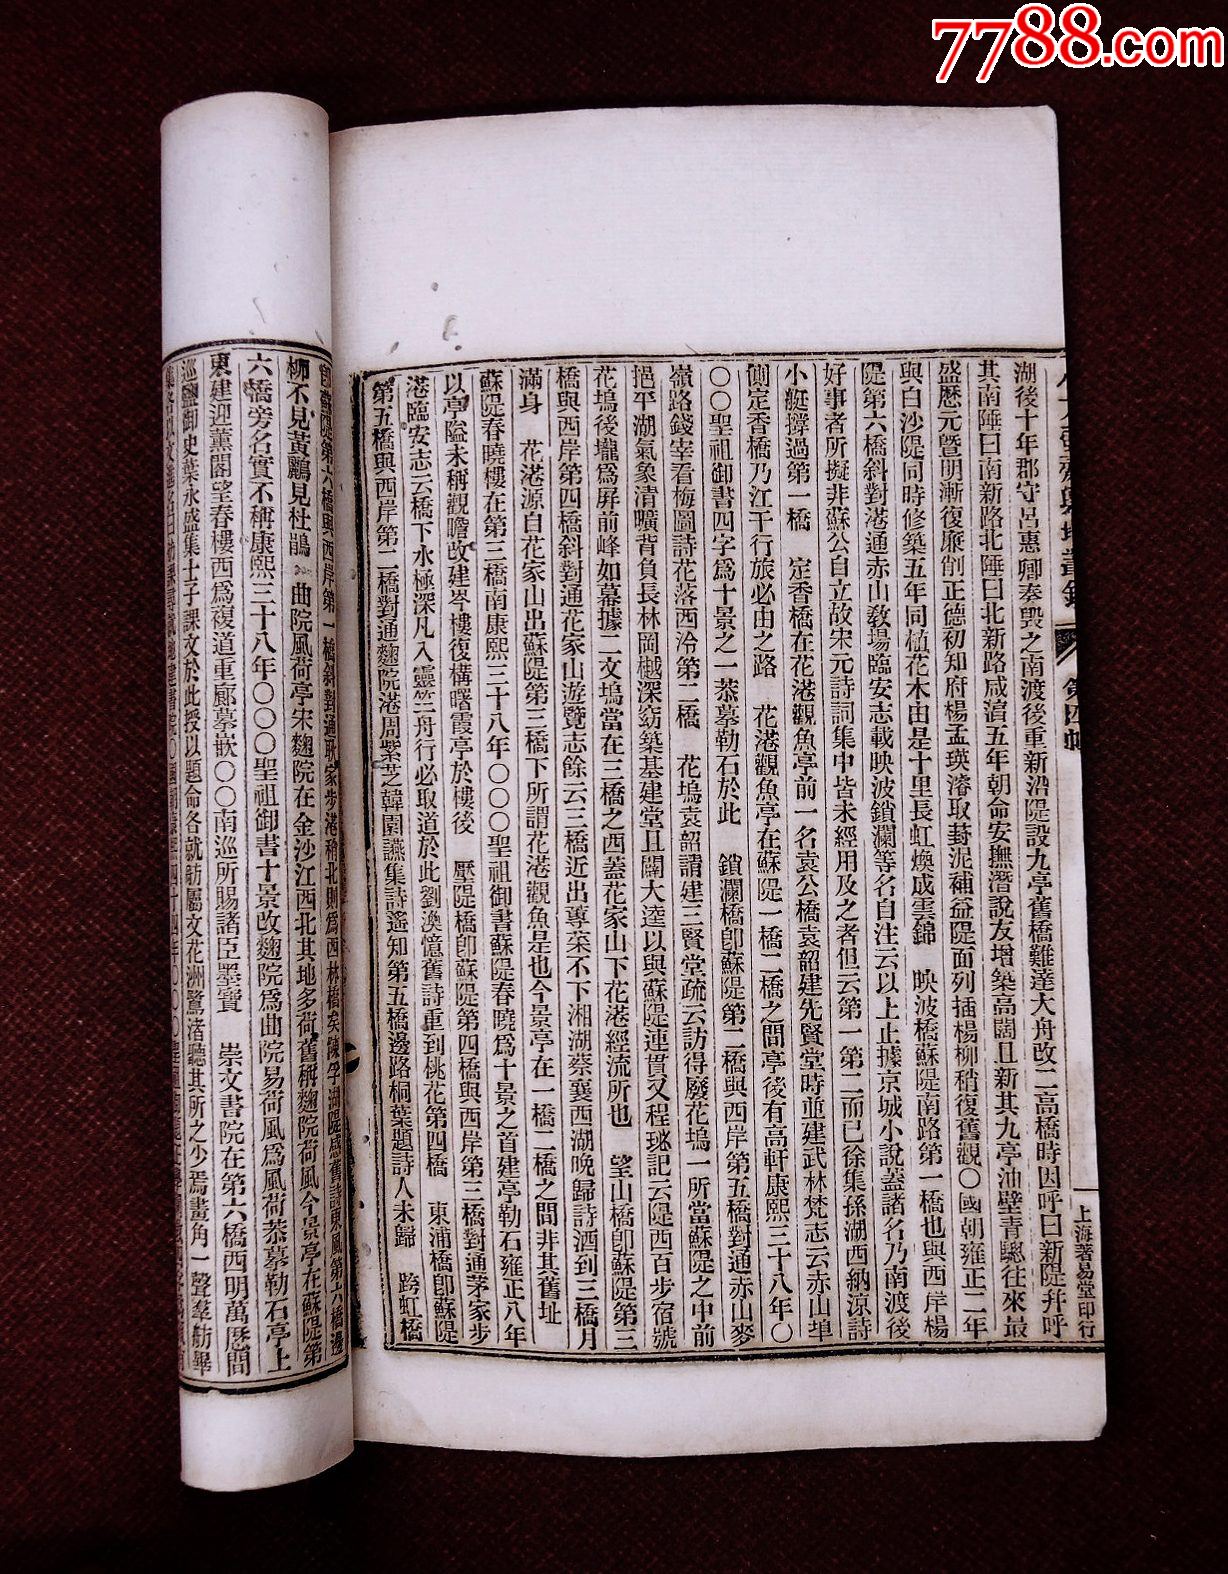 7788.com
第四帙
上海著易堂印行
湖後十年郡守呂惠卿奏毀之南渡後重新沿隄設九亭舊橋難達大舟改二高橋時因呼曰新隄幷呼
其南陲曰南新路北陲曰北新路咸淳五年朝命安撫潛說友增築高闊且新其九亭油壁青驄往來最
盛歷元暨明漸復廉削正德初知府楊孟瑛濬取封泥補益隄面列插楊柳稍復舊觀〇國朝雍正二年
與白沙隄同時修築五年同植花木由是十里長虹煥成雲錦 映波橋蘇隄南路第一橋也與西岸楊
隄第六橋斜對港通赤山敎場臨安志載映波鎖瀾等名自注云以上止據京城小說蓋諸名乃南渡後
好事者所擬非蘇公自立故宋元詩詞集中皆未經用及之者但云第一第二而已徐集孫湖西納涼詩
小艇撐過第一橋 定香橋在花港觀魚亭前一名袁公橋袁韶建先賢堂時並建武林梵志云赤山埠
側定香橋乃江干行旅必由之路 花港觀魚亭在蘇隄一橋二橋之間亭後有高軒康熙三十八年〇
〇〇聖祖御書四字爲十景之一恭摹勒石於此 鎖瀾橋卽蘇隄第二橋與西岸第五橋對通赤山麥
嶺路錢宰看梅圖詩花落西泠第二橋 花塢袁韶請建三賢堂疏云訪得廢花塢一所當蘇隄之中前
挹平湖氣象清曠背負長林岡樾深窈築基建堂且闢大逵以與蘇隄連貫又程珌記云隄西百步宿號
花塢後壠爲屏前峰如幕據二文塢當在三橋之西蓋花家山下花港經流所也 望山橋卽蘇隄第三
橋與西岸第四橋斜對通花家山遊覽志餘云三橋近出蓴菜不下湘湖蔡襄西湖晚歸詩酒到三橋月
滿身 花港源自花家山出蘇隄第三橋下所謂花港觀魚是也今景亭在一橋二橋之間非其舊址
蘇隄春曉樓在第三橋南康熙三十八年〇〇〇聖祖御書蘇隄春曉爲十景之首建亭勒石雍正八年
以亭隘未稱觀瞻改建岑樓復構曙霞亭於樓後 壓隄橋卽蘇隄第四橋與西岸第三橋對通茅家步
港臨安志云橋下水極深凡入靈竺舟行必取道於此劉渙憶舊詩重到桃花第四橋 東浦橋卽蘇隄
第五橋與西岸第二橋對通麴院港周紫芝韓園讌集詩遙知第五橋邊路桐葉題詩人未歸 跨虹橋
卽蘇隄第六橋與西岸第一橋斜對通耿家步港稍北則爲西林橋矣陳孚湖隄感舊詩東風第六橋邊
柳不見黃鸝見杜鵑 曲院風荷亭宋麴院在金沙江西北其地多荷舊稱麴院荷風今景亭在蘇隄第
六橋旁名實不稱康熙三十八年〇〇〇聖祖御書十景改麴院爲曲院易荷風爲風荷恭摹勒石亭上
東建迎薰閣望春樓西爲複道重廊摹嵌〇〇南巡所賜諸臣墨寶 崇文書院在第六橋西明萬歷間
巡鹽御史葉永盛集士子課文於此授以題命各就舫屬文花洲鷺渚聽其所之少焉畫角一聲羣舫畢